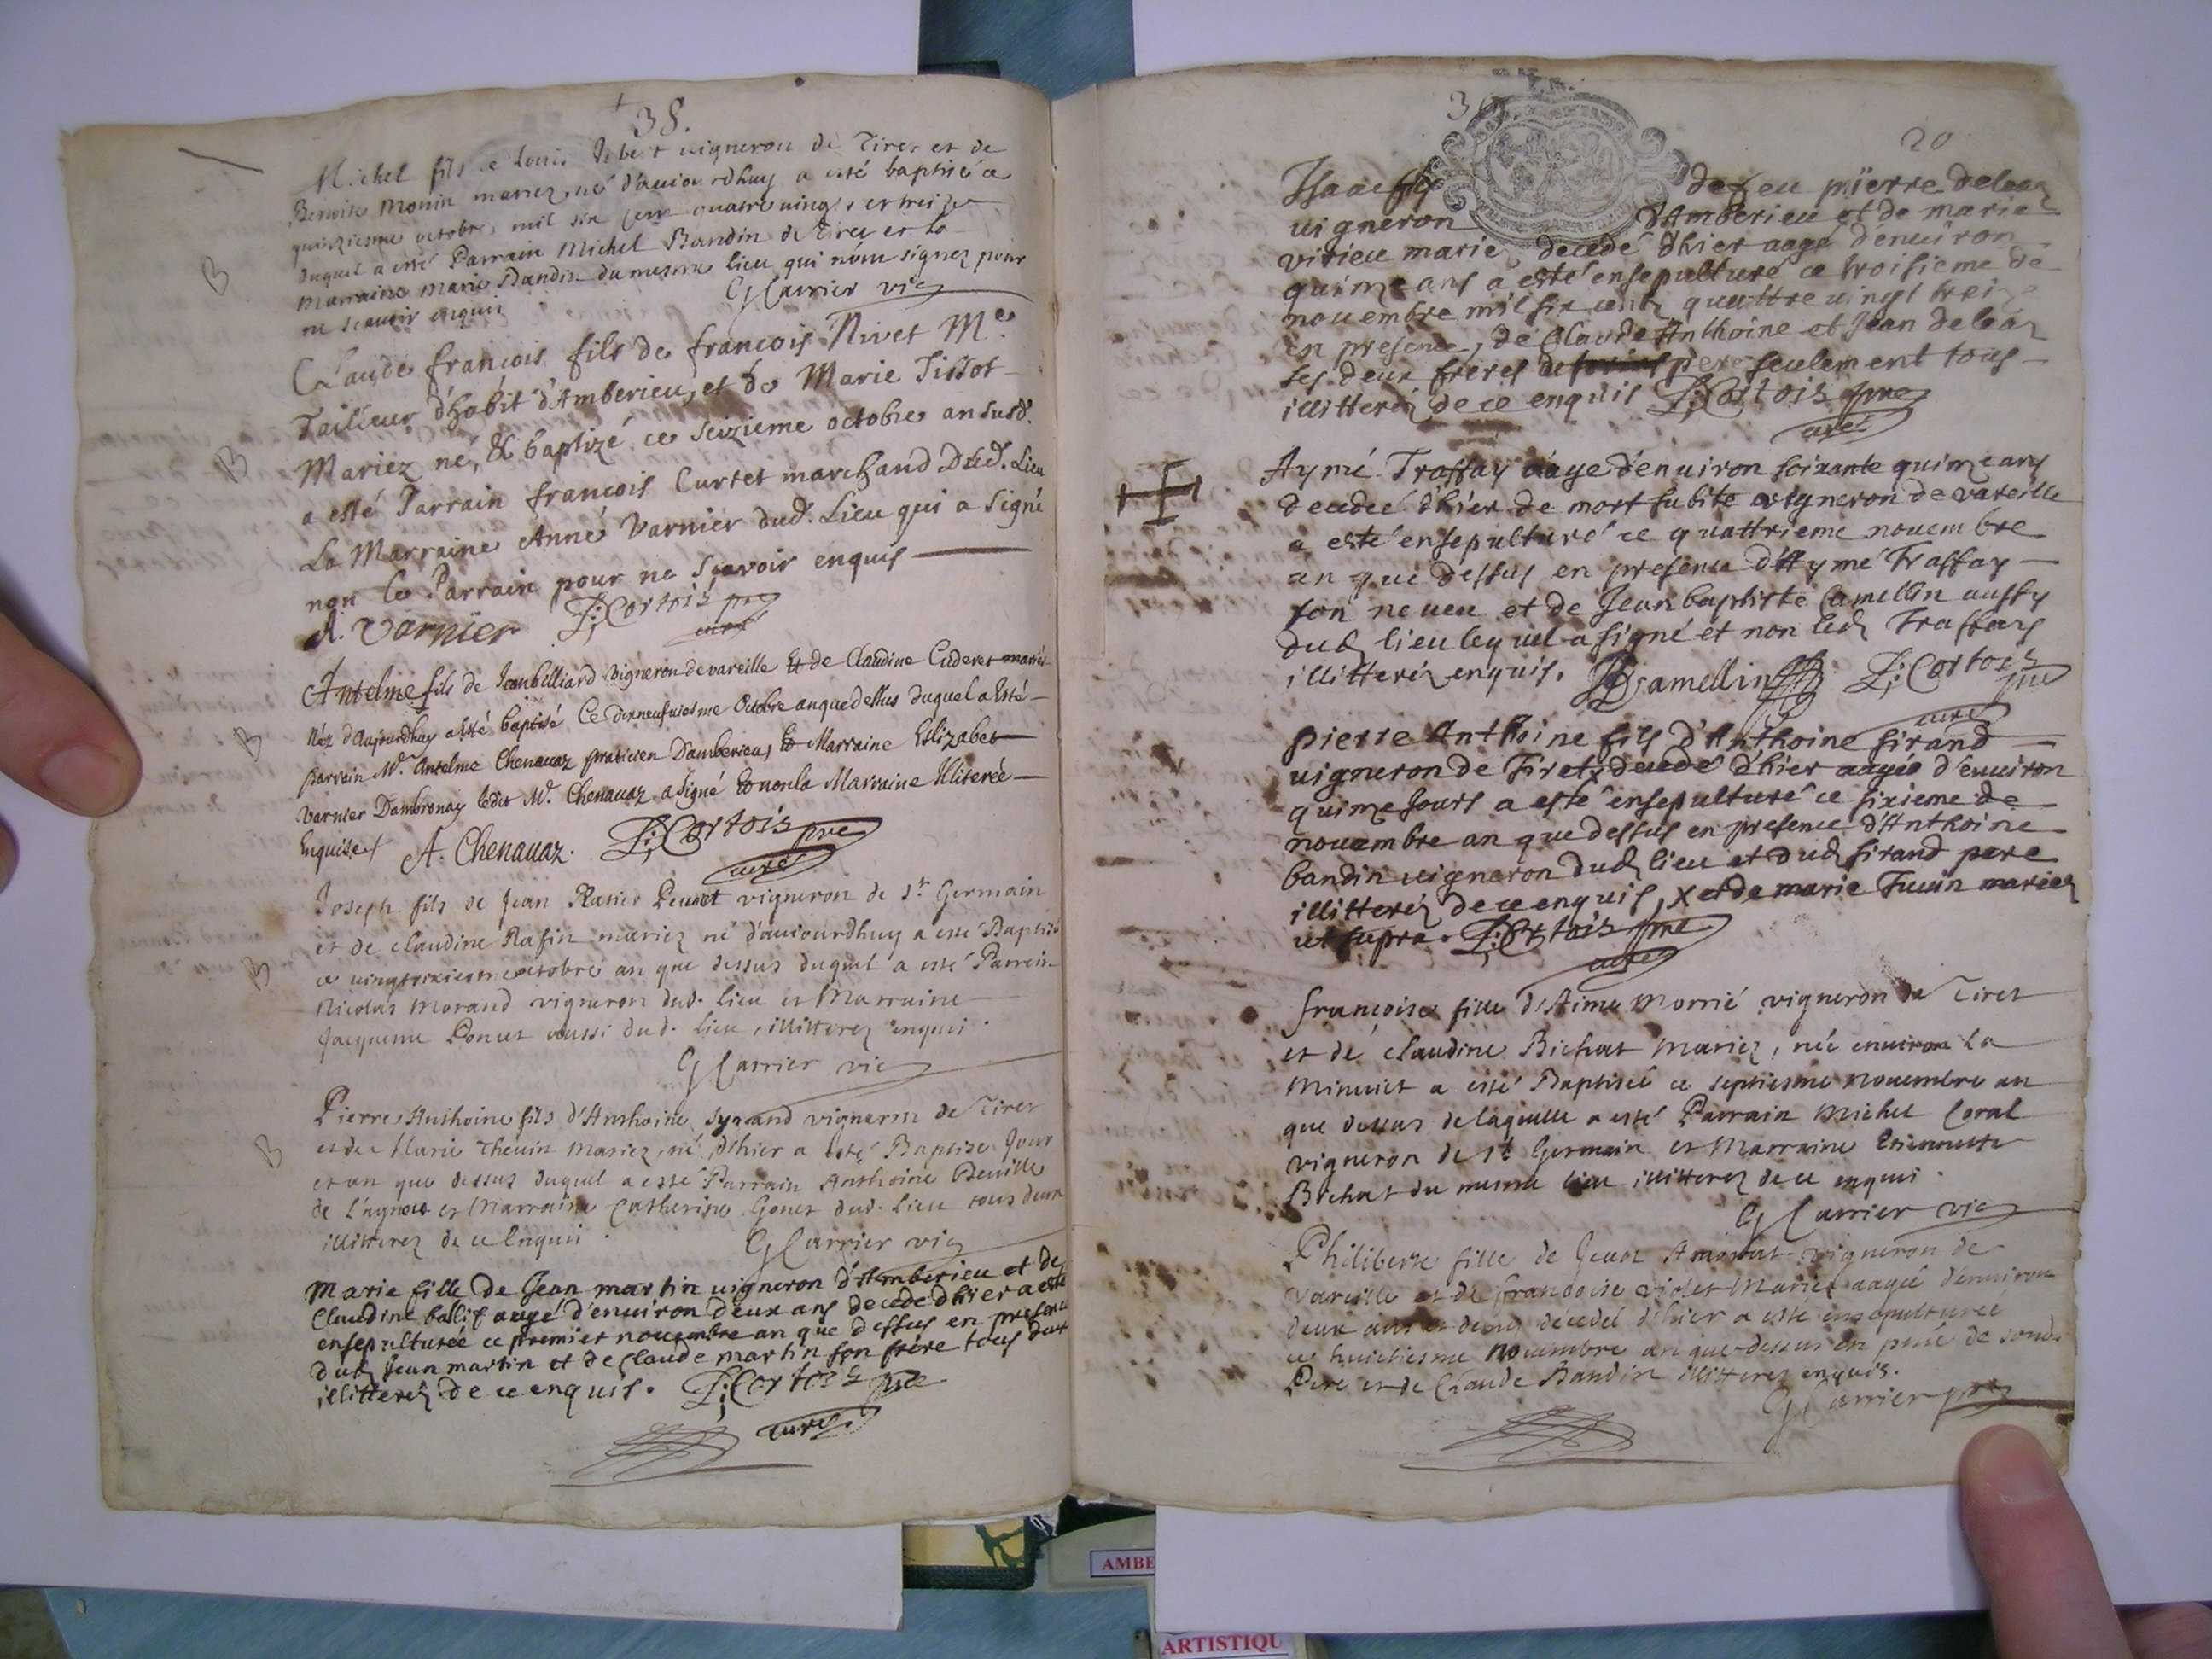 38.
Michel fils de Louis vigneron de Tiret et de
Benoite Monin mariez né d'auiourdhuy a esté baptisé ce
quinziesme octobre mil six cent quatre uingts et treize
duquel a esté Parrain Michel Bandin de Tiret et la
marraine marie Bandin du mesme lieu qui n'ont signez pour
ne scauoir enquis
G Carrier vic
B
Claude francois fils de francois Nivet Me.
Tailleur d'habit d'Amberieu, et de Marie Tissot
Mariez né, & baptizé ce seizieme octobre an susd.
a esté Parrain francois Curtet marchand Dud. Lieu
La Marraine Anne Varnier dud. Lieu qui a Signé
non le Parrain pour ne scavoir enquis
A. Varnier P: Cortois pre
curé
B
Antelme fils de Jean billiard vigneron de vareille Et de Claudine Cuderet mariés
Néz d'Aujourdhuy a esté baptisé Ce dixneufuiesme Octobre an que dessus duquel a Esté
parrain Mr. Antelme Chenavaz praticien Damberieu, Et Marraine Elizabet
varnier Dambronay ledit Mr. Chenavaz a signé Et non la Marraine Illiterée
Enquise/ A. Chenauaz. P: Cortois pre
curé
B
Joseph fils de Jean vigneron de St Germain
et de claudine Rafin mariez né d'auiourdhuy a esté Baptisé
ce uingtsixiesme octobre an que dessus duquel a esté Parrein
Nicolas Morand vigneron dud. lieu et Marraine
Jacqueme Poncet aussi dud. lieu, illitterez enquis.
G Carrier vic
B
Pierre Anthoine fils d'Anthoine Syrand vigneron de Tiret
et de Marie Theuin Mariez, né d'hier a esté Baptisé Jour
et an que dessus duquel a esté Parrain Anthoine Deuille
de Lagnieu et Marraine Catherine Gonet dud. lieu tous deux
illitterez de ce Enquis.
G Carrier vic
B
Marie fille de Jean martin uigneron d'Amberieu et de
Claudine ballif aagé d'enuiron deux ans decedé dhier a esté
ensepulturée ce premier nouembre an que dessus en presence
dud Jean martin et de Claude martin son frere tous deux
illitteréz de ce enquis. P: Cortois pre
curé
20
Isaac fils de feu pierre deleaz
uigneron d'Amberieu et de marie
virieu mariez decedé d'hier aagé d'enuiron
quinze ans a esté ensepulturé ce troisieme de
nouembre mil six centz quattre uingt treize
en presence, de Claude Anthoine et Jean deleaz
ses deux freres de pere seulement tous
illitteréz de ce enquis P: Cortois pre
curé
Aymé Traffay aage d'enuiron soixante quinze ans
decedeé d'hier de mort subite vigneron de vareille
a esté ensepulturé ce quattrieme nouembre
an que dessus en presence d'Aymé Traffay
son neueu et de Jean baptiste Camellin aussy
dud lieu lequel a signé et non led Traffay
illitteréz enquis. JBCamellin P: Cortois
pre
curé
pierre Anthoine fils d'Anthoine sirand
uigneron de Tiret x decedé d'hier aagée d'enuiron
quinze Jours a esté ensepulturé ce sixieme de
nouembre an que dessus en presence d'Anthoine
bandin uigneron dud lieu et dud sirand pere
illitteréz de ce enquis, X et de marie Tiuin mariez
ut supra. P: Cortois pre
curé
françoise fille d'Aime Morrié vigneron de Tiret
et de claudine Bichat Mariez, née enuiron la
Minuict a esté Baptisée ce septiesme nouembre an
que dessus de laquelle a esté Parrain Michel Coral
vigneron de St Germain et Marraine Etiennette
Bichat du mesme lieu illitterez de ce enquis.
G Carrier vic
Philiberte fille de Jean vigneron de
vareille et de francoise violet Mariez aagée d'enuiron
deux ans et demy décedeé d'hier a esté ensepulturée
ce huictiesme nouembre an que dessus en pnce de sond.
Pere et de Claude Bandin illitterez enquis.
G Carrier
AMBE
ARTISTIQU